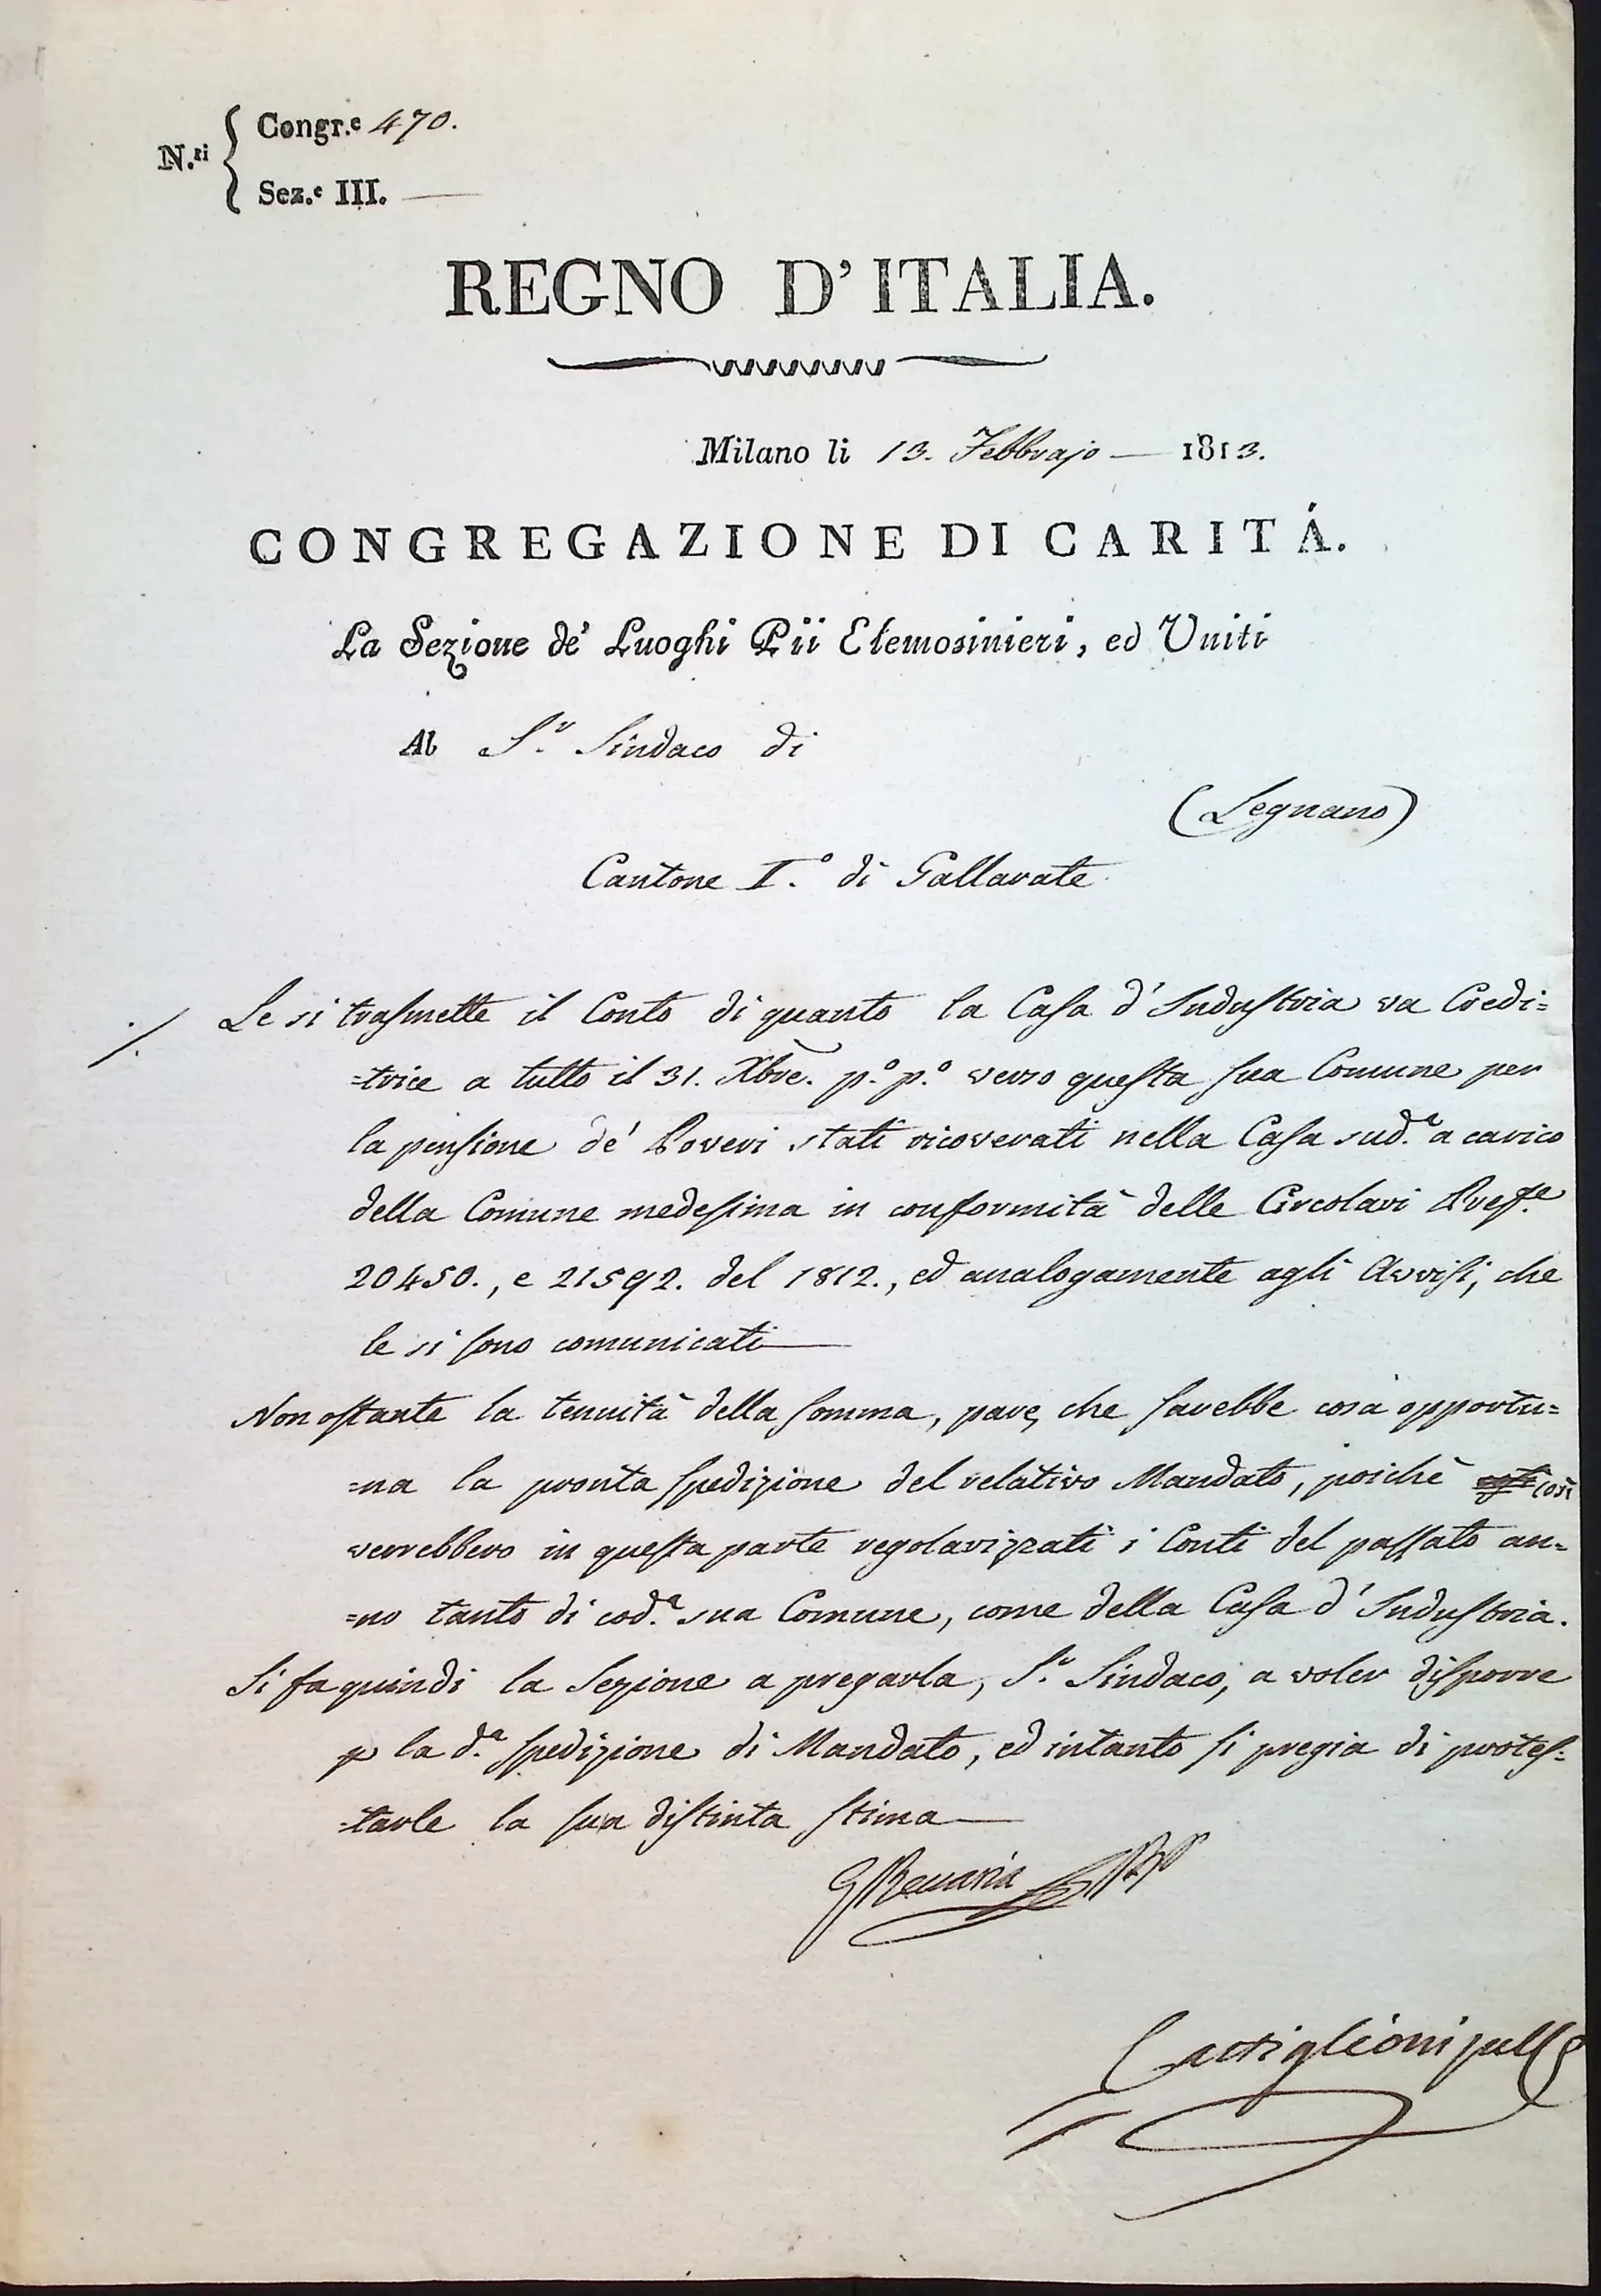 Congr.e 470.
N.ri
Sez.e III.
REGNO D'ITALIA.
Milano li 13. Febbrajo — 1813.
CONGREGAZIONE DI CARITÁ.
La Sezione de' Luoghi Pii Elemosinieri, ed Uniti
Al S.r Sindaco di
(Legnano)
Cantone I.° di Gallarate
./. Le si trasmette il Conto di quanto la Casa d'Industria va Credi=
=trice a tutto il 31. Xbre. p.° p.° verso questa sua Comune per
la pensione de' Poveri stati ricoverati nella Casa sud.a a carico
della Comune medesima in conformità delle Circolari Pref.e
20450., e 21592. del 1812., ed analogamente agli Avvisi, che
le si sono comunicati —
Non ostante la tenuità della somma, pare, che sarebbe cosa opportu=
=na la pronta spedizione del relativo Mandato, poichè così
verrebbero in questa parte regolarizzati i Conti del passato an=
=no tanto di cod.a sua Comune, come della Casa d'Industria.
Si fa quindi la Sezione a pregarla, S.r Sindaco, a voler disporre
p la d.a spedizione di Mandato, ed intanto si pregia di protes=
=tarle la sua distinta stima —
Castiglioni